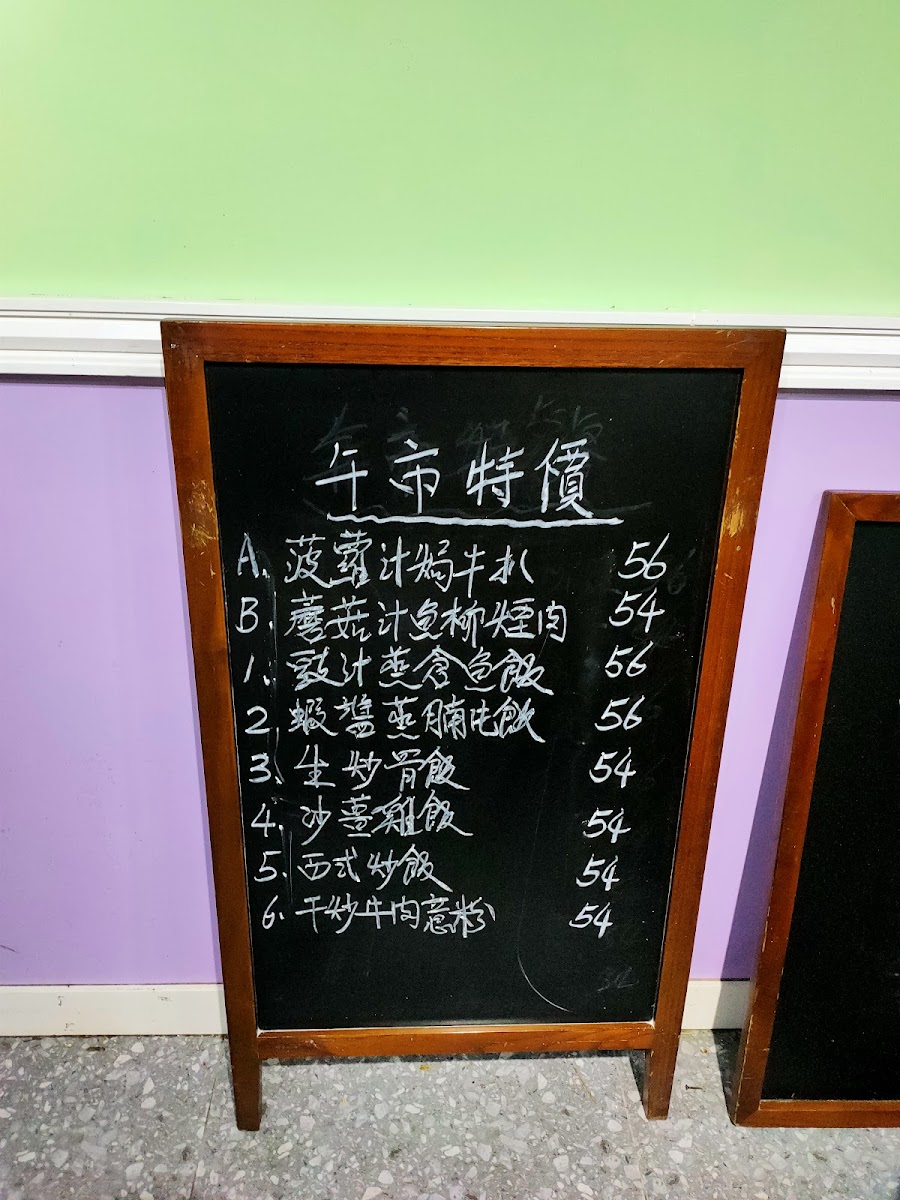 午市特價
A. 菠蘿汁焗牛扒 56
B. 蘑菇汁魚柳煙肉 54
1. 豉汁蒸倉魚飯 56
2. 蝦醬蒸腩肉飯 56
3. 生炒骨飯 54
4. 沙薑雞飯 54
5. 西式炒飯 54
6. 干炒牛肉意粉 54